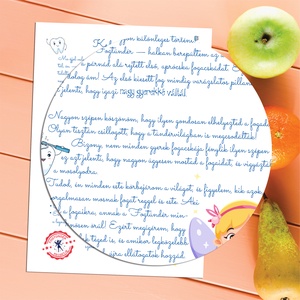 különleges történt
Fogtündér — halkan berepültem az
a párnád alá rejtett első, aprócska fogacskádat.
dolog ám! Az első kiesett fog mindig varázslatos
jelenti, hogy igazi nagy gyerekké váltál
Nagyon szépen köszönöm, hogy ilyen gondosan elhelyezted a fogad
Olyan tisztán csillogott, hogy a tündérvilágban is megcsodálták!
Bizony, nem minden gyerek fogacskája fénylik ilyen szépen
ez azt jelenti, hogy nagyon ügyesen mostad a fogaidat, és vigyáztál
a mosolyodra.
Tudod, én minden este körbejárom a világot, és figyelem, kik azok
szorgalmasan mosnak fogat reggel és este. Aki
a fogaikra, annak a Fogtündér min-
Ezért megígérem, hogy
téged is, és amikor legközelebb
újra ellátogatok hozzád